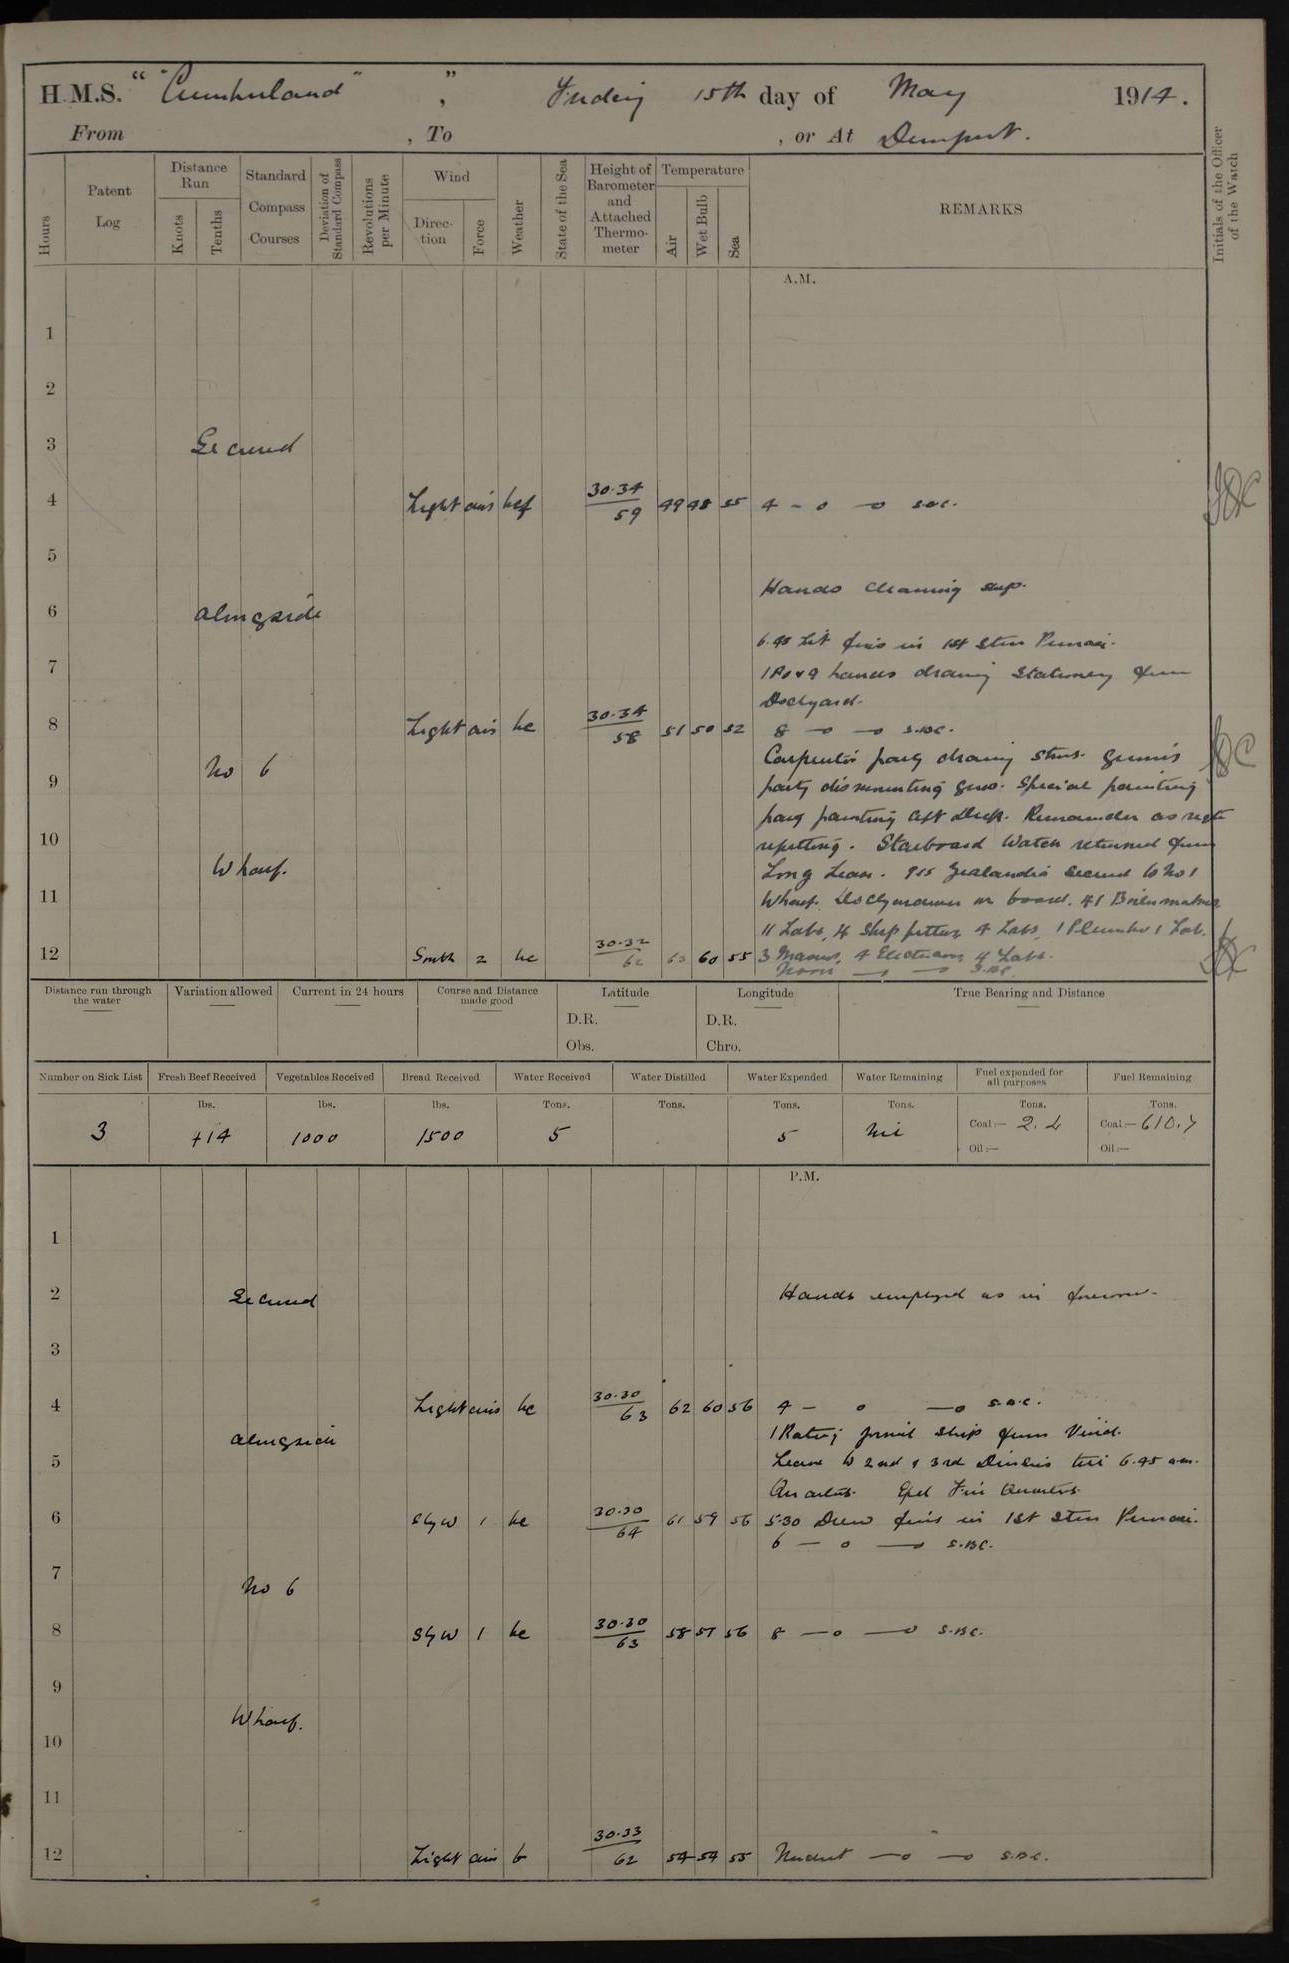 H.M.S. "Cumberland" , Friday 15th day of May 1914.
From , To , or At Devonport.
Hours
Patent Log
Distance Run
Knots
Tenths
Standard Compass Courses
Deviation of Standard Compass
Revolutions per Minute
Wind
Direction
Force
Weather
State of the Sea
Height of Barometer and Attached Thermometer
Temperature
Air
Wet Bulb
Sea
REMARKS
Initials of the Officer of the Watch
A.M.
1
2
3 Secured
4 Light airs bcf 30.34 59 49 48 55 4 - o —o S.B.C.
5
Hands cleaning ship.
6 alongside
6.45 Lit fires in 1st Steam Pinnace.
7 1 PO & 9 hands drawing Stationery from
Dockyard.
8 Light airs bc 30.34 58 51 50 52 8 —o —o S.B.C.
Carpenter's party drawing stores. Gunner's
No 6
9 party dismounting guns. Special painting
party painting aft Deck. Remainder as reqte
10 refitting. Starboard Watch returned from
Wharf. Long Leave. 9.15 Zealandia secured to No 1
11 Wharf. Dockyardmen on board. 41 Boilermakers
11 Labs, 4 Ship fitters 4 Labs, 1 Plumber 1 Lab.
12 South 2 bc 30.32 62 60 55 3 Masons, 4 Electricians 4 Labs.
Noon —o —o S.B.C.
Distance run through the water
Variation allowed
Current in 24 hours
Course and Distance made good
Latitude
D.R.
Obs.
Longitude
D.R.
Chro.
True Bearing and Distance
Number on Sick List
Fresh Beef Received
Vegetables Received
Bread Received
Water Received
Water Distilled
Water Expended
Water Remaining
Fuel expended for all purposes
Fuel Remaining
lbs. lbs. lbs. Tons. Tons. Tons. Tons. Tons. Tons.
3 414 1000 1500 5 5 Nil Coal:— 2.2 Coal:— 610.7
Oil:— Oil:—
P.M.
1
2 Secured Hands employed as in forenoon.
3
4 Light airs bc 30.30 63 62 60 56 4 - o —o S.B.C.
alongside 1 Rating joined ship from Vivid.
5 Leave to 2nd & 3rd Divisions till 6.45 a.m.
Quarters. Exd Fire Quarters.
6 SbyW 1 bc 30.30 64 61 59 56 5.30 Drew fires in 1st Steam Pinnace.
6 — o —o S.B.C.
7 No 6
8 SbyW 1 bc 30.30 63 58 57 56 8 —o —o S.B.C.
9
Wharf.
10
11
12 Light airs b 30.33 62 54 54 55 Midnt —o —o S.B.C.